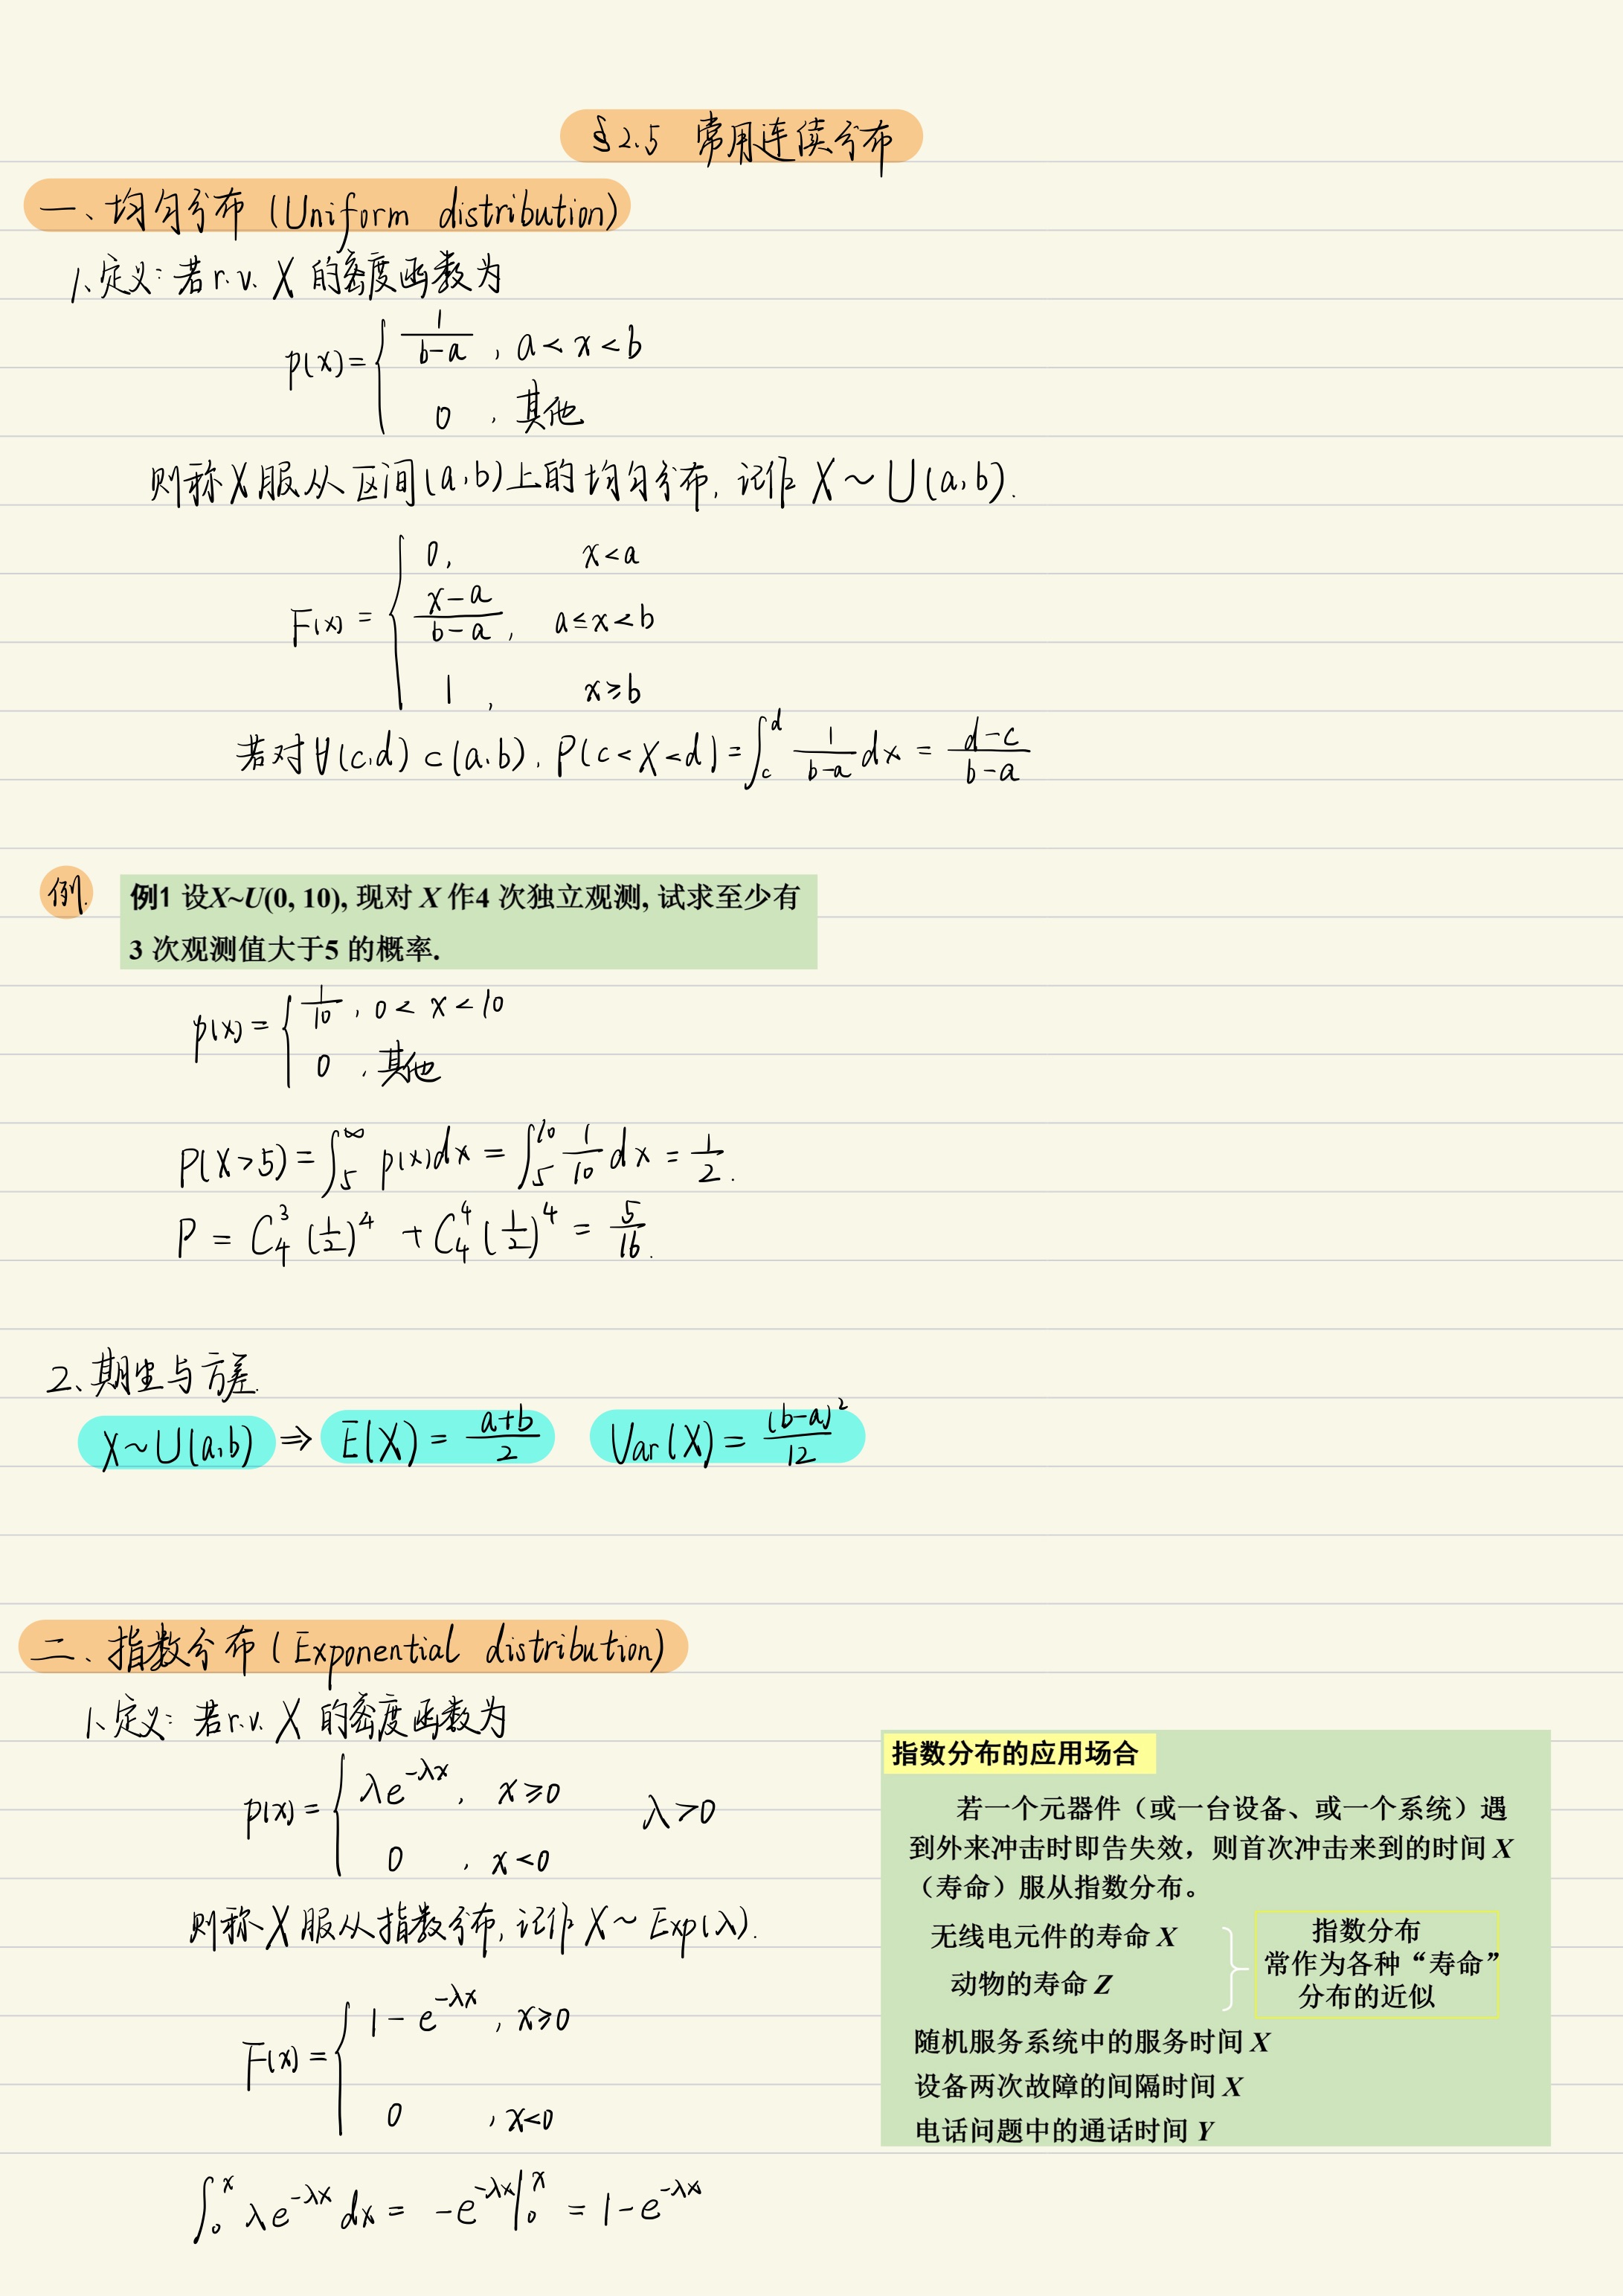 §2.5 常用连续分布
一、均匀分布 (Uniform distribution)
1、定义: 若 r.v. X 的密度函数为
p(x)= { 1/(b-a) , a<x<b
0 , 其他
则称X服从区间(a,b)上的均匀分布, 记作 X~U(a,b).
F(x) = { 0, x<a
(x-a)/(b-a), a≤x<b
1 , x≥b
若对∀(c,d)⊂(a,b), P(c<X<d)=∫_c^d 1/(b-a) dx = (d-c)/(b-a)
例.
例1 设X~U(0, 10), 现对 X 作4 次独立观测, 试求至少有
3 次观测值大于5 的概率.
p(x)= { 1/10 , 0<x<10
0 , 其他
P(X>5)=∫_5^∞ p(x)dx = ∫_5^10 1/10 dx = 1/2.
P = C_4^3 (1/2)^4 + C_4^4 (1/2)^4 = 5/16.
2、期望与方差.
X~U(a,b) ⇒ E(X) = (a+b)/2 Var(X) = (b-a)^2/12
二、指数分布 (Exponential distribution)
1、定义: 若r.v. X 的密度函数为
p(x)= { λe^{-λx}, x≥0 λ>0
0 , x<0
则称X服从指数分布, 记作 X~Exp(λ).
F(x)= { 1-e^{-λx} , x≥0
0 , x<0
∫_0^x λe^{-λx} dx = -e^{-λx}|_0^x = 1-e^{-λx}
指数分布的应用场合
若一个元器件（或一台设备、或一个系统）遇
到外来冲击时即告失效，则首次冲击来到的时间 X
（寿命）服从指数分布。
无线电元件的寿命 X
动物的寿命 Z
指数分布
常作为各种“寿命”
分布的近似
随机服务系统中的服务时间 X
设备两次故障的间隔时间 X
电话问题中的通话时间 Y